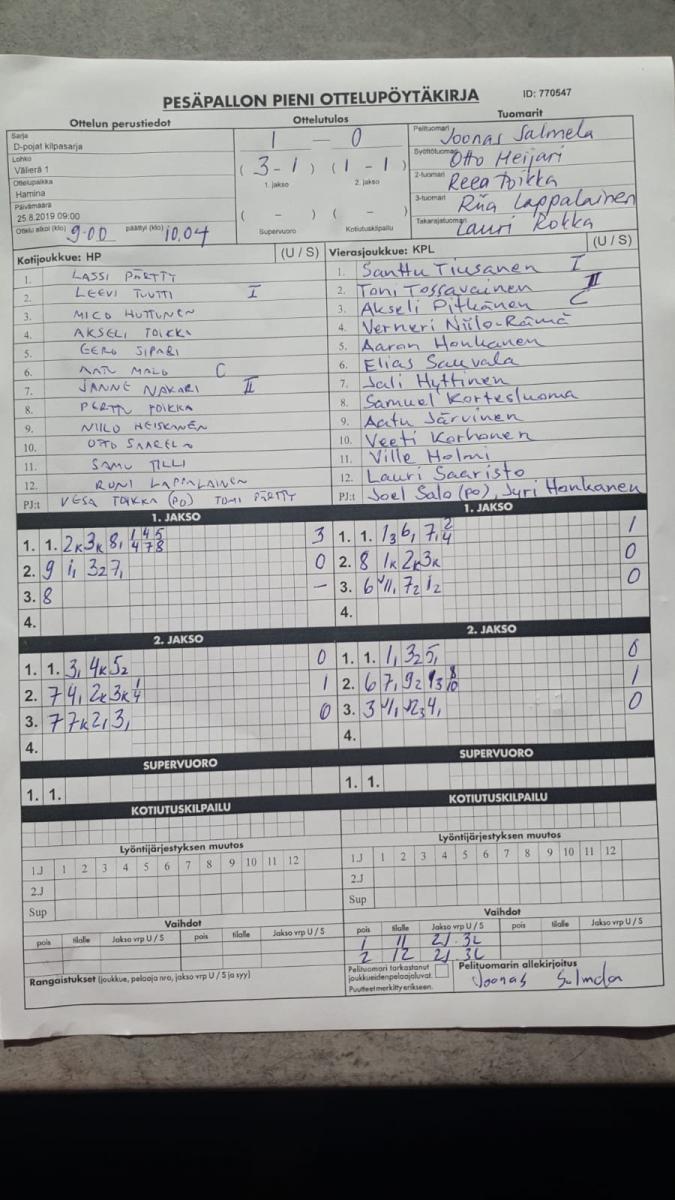 PESÄPALLON PIENI OTTELUPÖYTÄKIRJA
ID: 770547
Ottelun perustiedot
Sarja
D-pojat kilpasarja
Lohko
Välierä 1
Ottelupaikka
Hamina
Päivämäärä
25.8.2019 09:00
Ottelu alkoi (klo) 9.00 päättyi (klo) 10.04
Ottelutulos
1 – 0
( 3 - 1 ) ( 1 - 1 )
1. jakso 2. jakso
( - ) ( - )
Supervuoro Kotiutuskilpailu
Tuomarit
Pelituomari Joonas Salmela
Syöttötuomari Otto Heijari
2-tuomari Reea Toikka
3-tuomari Riia Lappalainen
Takarajatuomari Lauri Rokka
Kotijoukkue: HP (U / S)
1. LASSI PÄRTTY
2. LEEVI TUUTTI I
3. MICO HUTTUNEN
4. AKSELI TOIKKA
5. EERO SIPARI
6. MALO C
7. JANNE NAKARI II
8. PERTTU TOIKKA
9. NIILO HEISKANEN
10. OTTO SAARELA
11. SAMU TILLI
12. RONI LAPPALAINEN
PJ:t VESA TOIKKA (PO) TOMI PÄRTTY
Vierasjoukkue: KPL (U / S)
1. Santtu Tiusanen I
2. Toni Tossavainen II
3. Akseli Pitkänen C
4. Verneri Niilo-Rämä
5. Aaron Honkanen
6. Elias Sauvala
7. Jali Hyttinen
8. Samuel Kortesluoma
9. Aatu Järvinen
10. Veeti Korhonen
11. Ville Holmi
12. Lauri Saaristo
PJ:t Joel Salo (po), Jyri Honkanen
1. JAKSO
1. 1. 3
2. 9 0
3. 8 –
4.
1. JAKSO
1. 1. 1
2. 8 1K 2K 3K 0
3. 6 0
4.
2. JAKSO
1. 1. 3, 4K 5 2 0
2. 7 1
3. 7 0
4.
2. JAKSO
1. 1. 0
2. 6 1
3. 3 0
4.
SUPERVUORO
1. 1.
SUPERVUORO
1. 1.
KOTIUTUSKILPAILU
KOTIUTUSKILPAILU
Lyöntijärjestyksen muutos
1.J 1 2 3 4 5 6 7 8 9 10 11 12
2.J
Sup
Lyöntijärjestyksen muutos
1.J 1 2 3 4 5 6 7 8 9 10 11 12
2.J
Sup
Vaihdot
pois tilalle Jakso vrp U / S pois tilalle Jakso vrp U / S
Vaihdot
pois tilalle Jakso vrp U / S pois tilalle Jakso vrp U / S
1 11
2 12
Rangaistukset (joukkue, pelaaja nro, jakso vrp U / S ja syy)
Pelituomari tarkastanut
joukkueiden pelaajaluvat.
Puutteet merkitty erikseen.
Pelituomarin allekirjoitus
Joonas Salmela